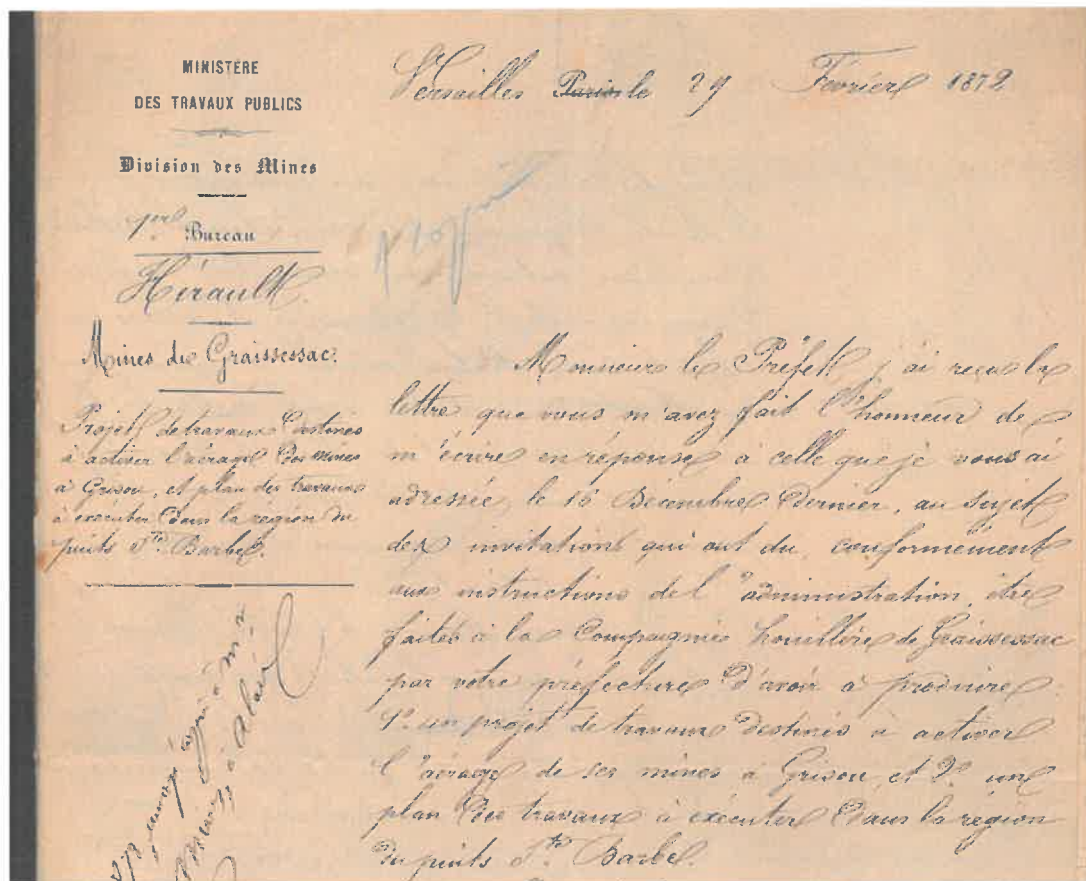 MINISTÈRE
DES TRAVAUX PUBLICS
Division des Mines
1er Bureau
Hérault.
Mines de Graissessac.
Projet de travaux destinés
à activer l'aérage des mines
à Grisou, et plan des travaux
à exécuter dans la région du
puits Ste Barbe.
Versailles Paris le 29 Février 1872
Monsieur le Préfet, j'ai reçu la
lettre que vous m'avez fait l'honneur de
m'écrire en réponse à celle que je vous ai
adressée, le 16 Décembre dernier, au sujet
des invitations qui ont du, conformément
aux instructions de l'administration, être
faites à la Compagnie houillère de Graissessac
par votre préfecture d'avoir à produire
1º un projet de travaux destinés à activer
l'aérage de ses mines à Grisou, et 2º un
plan des travaux à exécuter dans la région
du puits Ste Barbe.